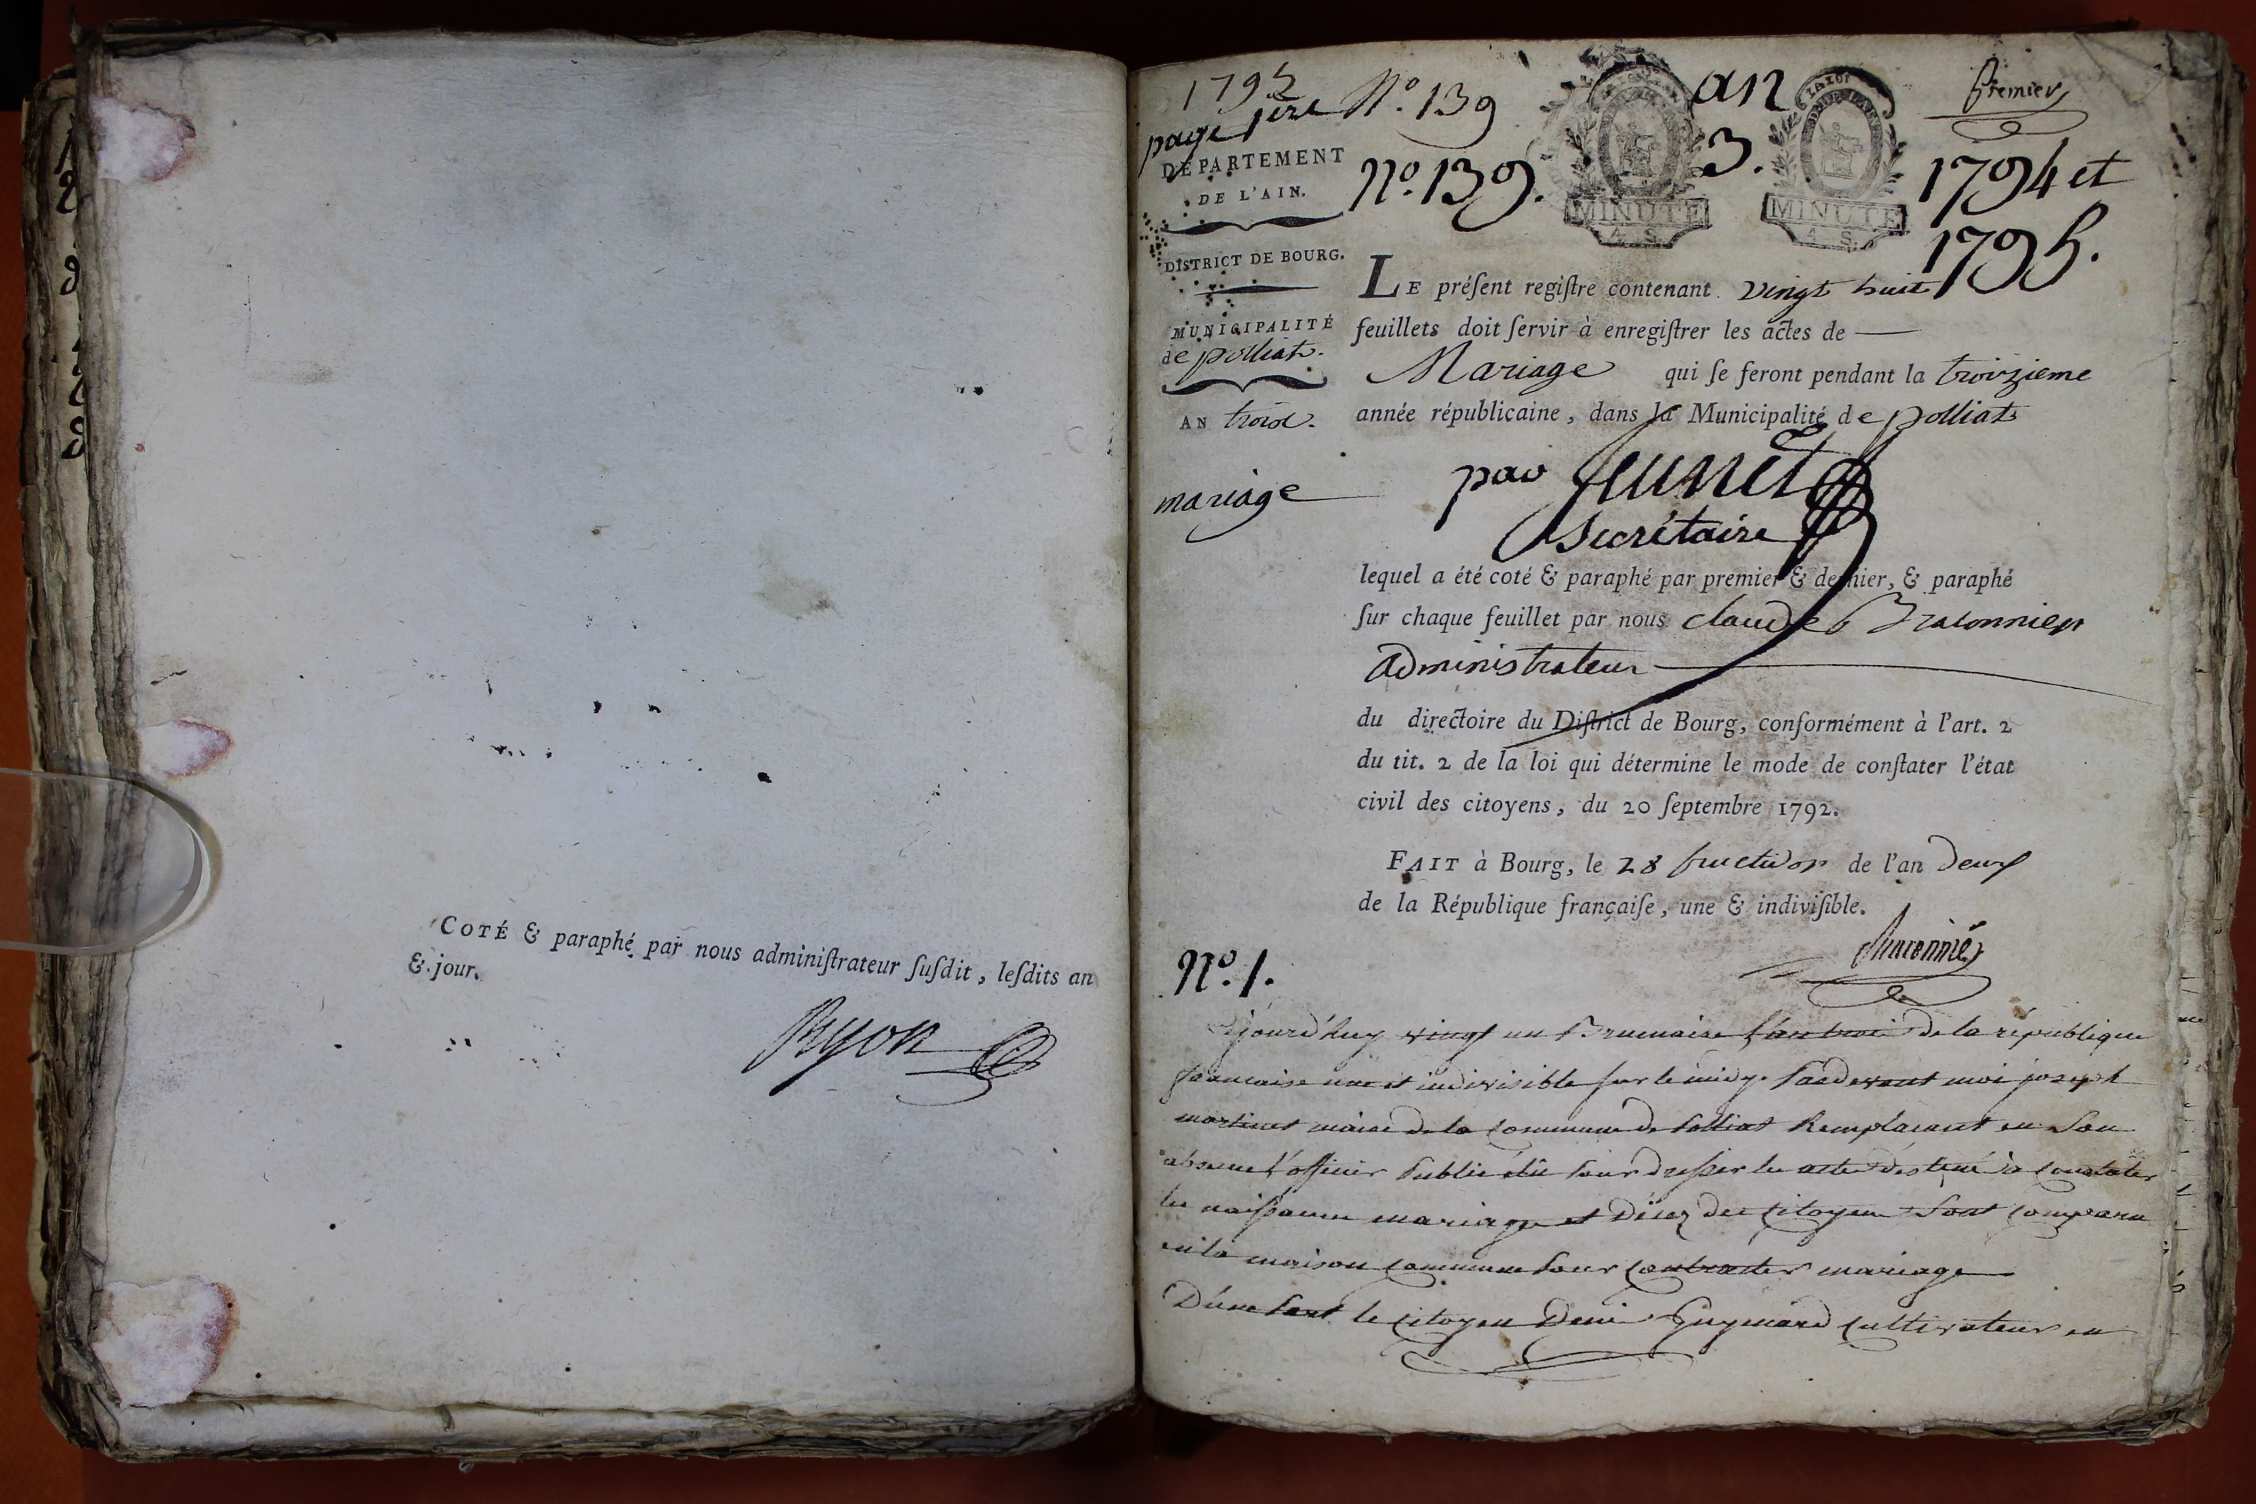 COTÉ & paraphé par nous adminiſtrateur ſuſdit, leſdits an
& jour.
1795
page 1ere N.º 139
DÉPARTEMENT
DE L'AIN.
N.º 139.
an
3.
MINUTE
4. S.
LA LOI
MINUTE
4. S.
Premier
1794 et
1795.
DISTRICT DE BOURG.
MUNICIPALITÉ
de polliat.
AN trois.
mariage
LE préſent regiſtre contenant vingt huit
feuillets doit ſervir à enregiſtrer les actes de
Mariage qui ſe feront pendant la troizieme
année républicaine, dans la Municipalité de polliat
par Jeunet
Secrétaire
lequel a été coté & paraphé par premier & dernier, & paraphé
ſur chaque feuillet par nous claude Braconnier
administrateur
du directoire du Diſtrict de Bourg, conformément à l'art. 2
du tit. 2 de la loi qui détermine le mode de conſtater l'état
civil des citoyens, du 20 ſeptembre 1792.
FAIT à Bourg, le 28 fructidor de l'an deux
de la République françaiſe, une & indiviſible.
N.º 1.
vingt un Brumaire l'an trois de la république
francaise une et indivisible sur le midy pardevant moi joseph
martinet maire de la commune de Polliat Remplacant en son
absence l'officier Public élû pour dresser les actes destiné à constater
les naissance mariage et décez des citoyens sont comparu
en la maison commune pour contracter mariage
D'une part le citoyen Denis Guymard cultivateur en